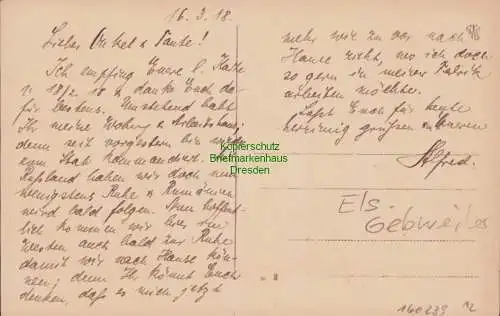 16.3.18.
Lieber Onkel & Tante!
Ich empfing Eure l. Karte
v. 18/2 18 & danke Euch da-
für bestens. Umstehend habt
Ihr meine Wohng & Arbeitshaus;
denn seit vorgestern bin wieder
zum Stab kommandiert. Mit
Rußland haben wir doch nun
wenigstens Ruhe & Rumänien
wird bald folgen. Nun hoffent-
lich kommen wir hier im
Westen auch bald zur Ruhe
damit wir nach Hause kön-
nen; denn Ihr könnt Euch
denken, daß es mich jetzt
mehr wie zu vor nach
Hause zieht, wo ich doch
so gern in meiner Fabrik
arbeiten möchte.
Laßt Euch für heute
herzinnig grüßen v. Eueren
Alfred.
Kopierschutz
Briefmarkenhaus
Dresden
Els.
Gebweiler
160239